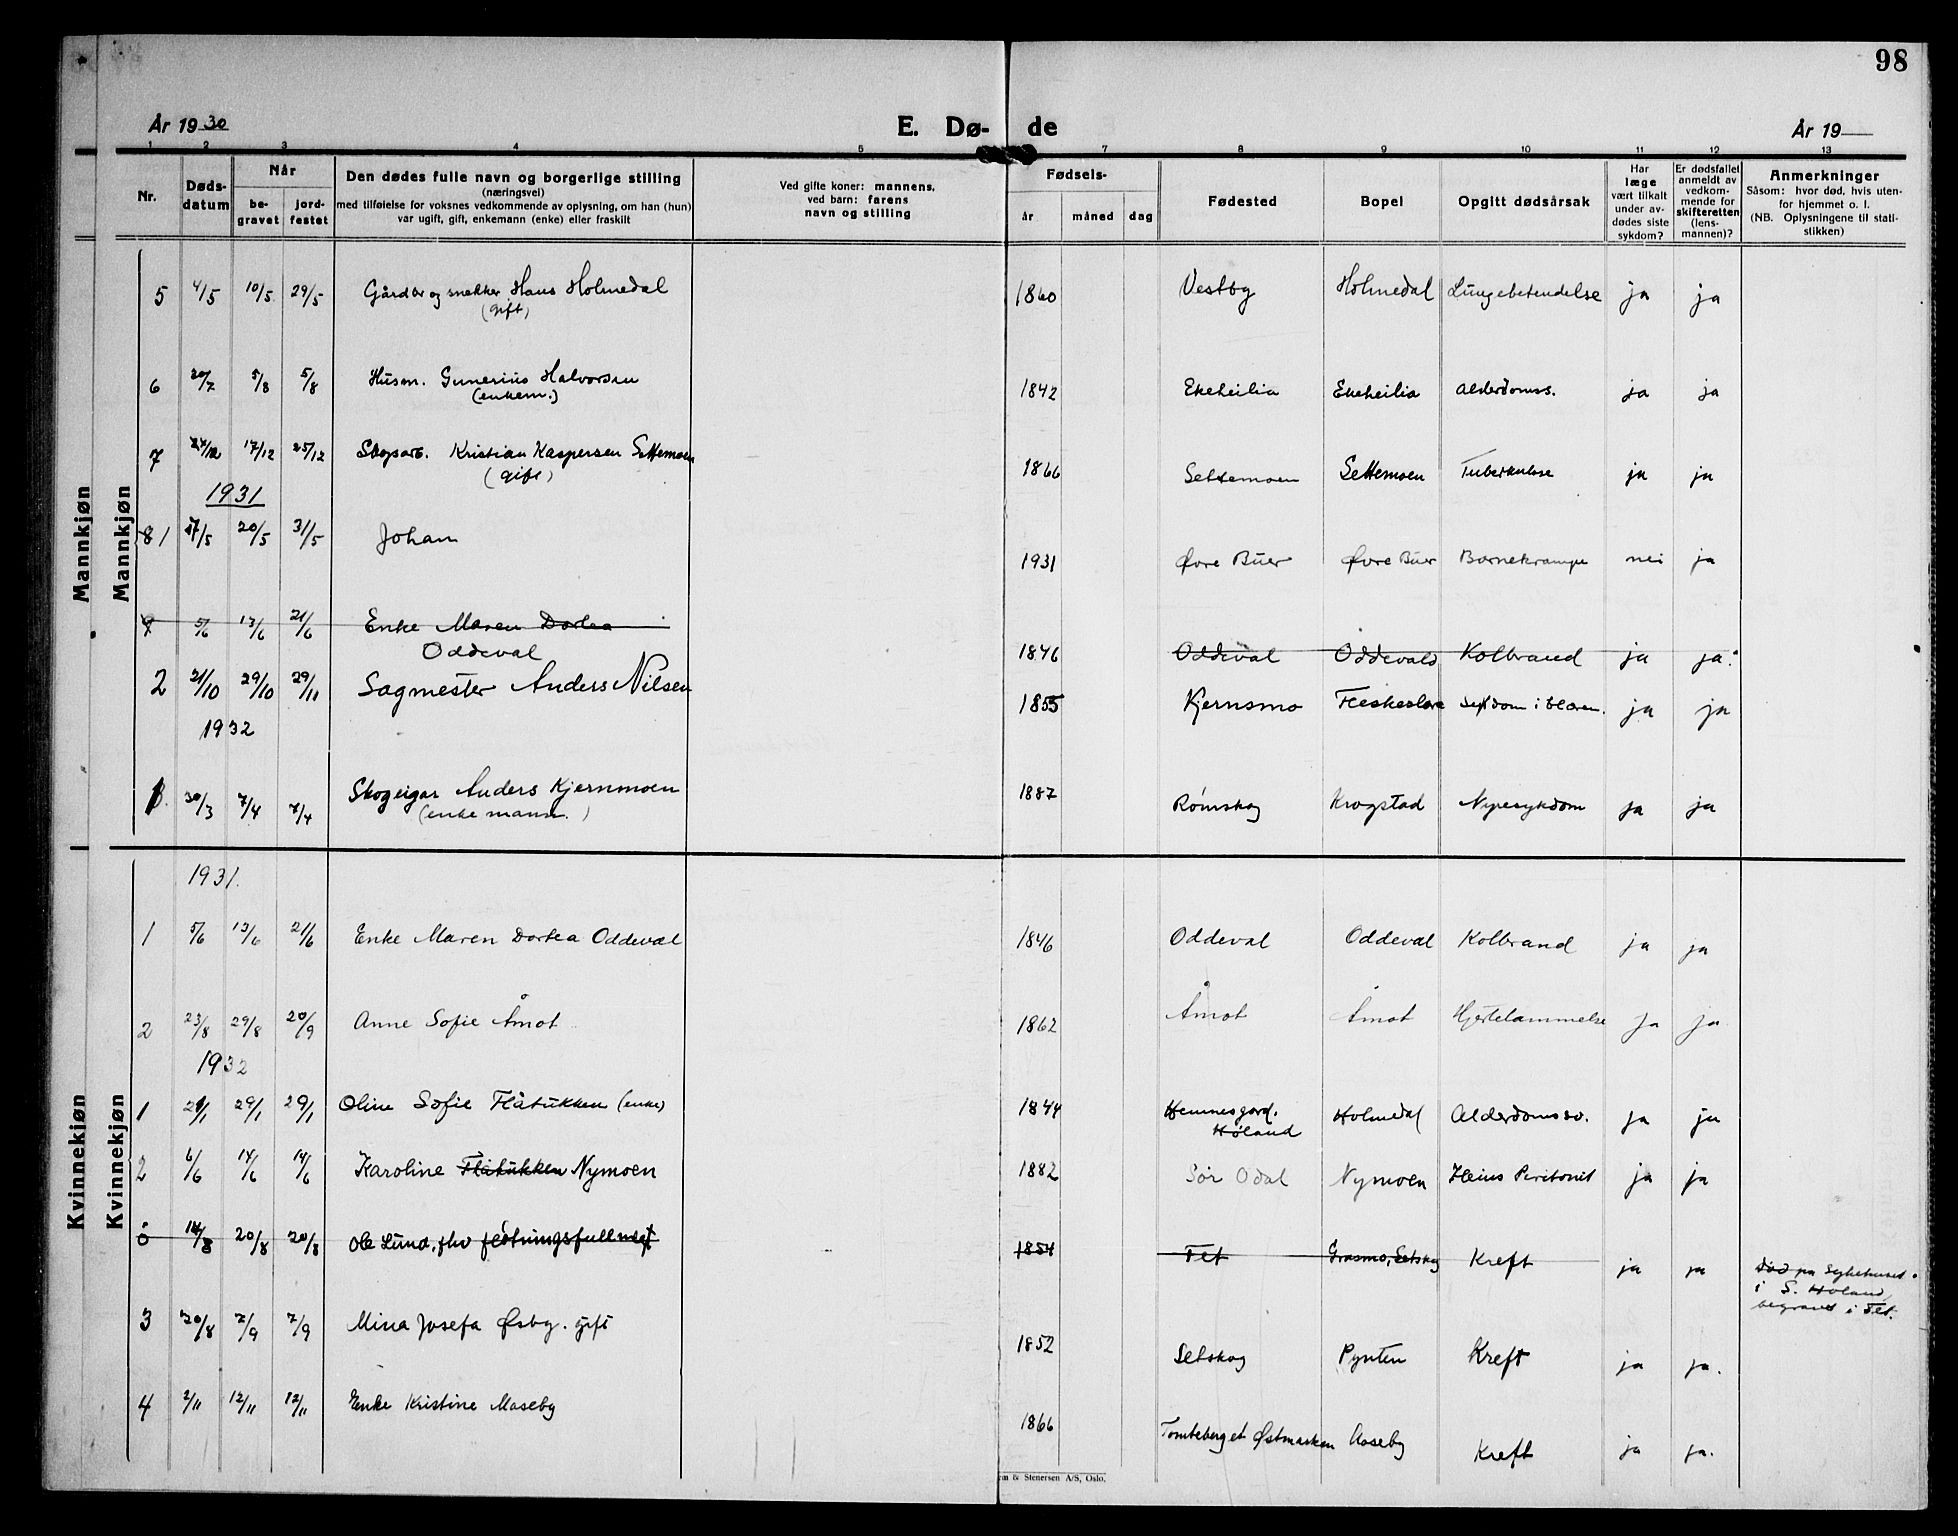 98
År 1930
E. Dø- de
År 19
1 2 3 4 5 7 8 9 10 11 12 13
Nr.
Døds-
datum
Når
be-
gravet
jord-
festet
Den dødes fulle navn og borgerlige stilling
(næringsvei)
med tilføielse for voksnes vedkommende av oplysning, om han (hun)
var ugift, gift, enkemann (enke) eller fraskilt
Ved gifte koner: mannens,
ved barn: farens
navn og stilling
Fødsels-
år måned dag
Fødested
Bopel
Opgitt dødsårsak
Har
læge
vært tilkalt
under av-
dødes siste
sykdom?
Er dødsfallet
anmeldt av
vedkom-
mende for
skifteretten
(lens-
mannen)?
Anmerkninger
Såsom: hvor død, hvis uten-
for hjemmet o. l.
(NB. Oplysningene til stati-
stikken)
Mannkjøn
Mannkjøn
5 4/5 10/5 29/5 Gårdbr og snekker Hans Holmedal 1860 Vestby Holmedal Lungebetendelse ja ja
(gift)
6 20/7 5/8 5/8 Husm. Gunerius Halvorsen 1842 Ekeheilia Ekeheilia Alderdomss. ja ja
(enkem.)
7 17/12 25/12 Skogsarb. Kristian Kaspersen Settemoen 1866 Settemoen Settemoen Tuberkulose ja ja
(gift)
1931
8 1 17/5 20/5 31/5 Johan 1931 Øvre Buer Øvre Buer Barnekrampe nei ja
9 5/6 13/6 21/6 Enke Maren Dortea 1846 Oddeval Oddevald Kolbrand ja ja.
Oddeval
2 21/10 29/10 29/11 Sagmester Anders Nilsen 1855 Kjernsmo sykdom i blæren. ja ja
1932
1 30/3 7/4 7/4 Skogeigar Anders Kjernmoen 1887 Rømskog Krogstad Nyresykdom ja ja
(enkemann.)
Kvinnekjøn
Kvinnekjøn
1931.
1 5/6 13/6 21/6 Enke Maren Dortea Oddeval 1846 Oddeval Oddeval Kolbrand ja ja
2 23/8 29/8 20/9 Anne Sofie Åmot 1862 Åmot Åmot Hjertelammelse ja ja
1932
1 21/1 29/1 29/1 Oline Sofie Flåtukken (enke) 1844 Hemnesgord. Holmedal Alderdomssv. ja ja
Høland
2 6/6 14/6 14/6 Karoline Flåtukken Nymoen 1882 Sør Odal Nymoen Peritonit ja ja
14/8 20/8 20/8 Ole Lund, fhv fløtningsfullmegt 1854 Fet Grasmo, Setskog Kreft ja ja Død på sykehuset
i S. Høland,
begravet i Fet.
3 20/8 2/9 2/9 Mina Josefa Øsby. gift 1852 Setskog Pynten Kreft ja ja.
4 2/11 12/11 12/11 Enke Kristine Moseby 1866 Tomteberget Østmarken Kreft ja ja.
& Stenersen A/S, Oslo.